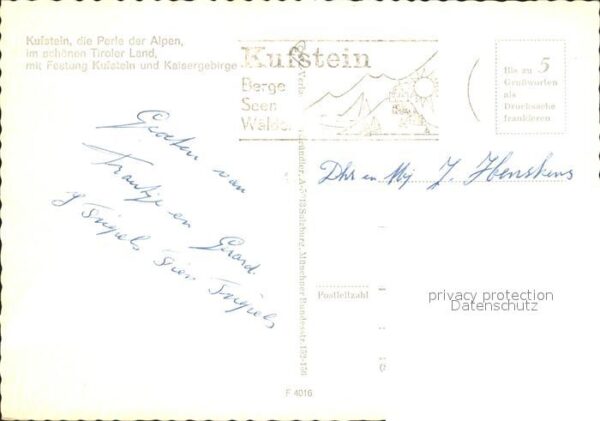 Kufstein, die Perle der Alpen,
im schönen Tiroler Land,
mit Festung Kufstein und Kaisergebirge
Kufstein
Berge
Seen
Wälder
Bis zu 5
Grußworten
als
Drucksache
frankieren
Groeten van
Trautje en Gerard.
Dhr en Mej J. Henskens
A-5013 Salzburg, Münchner Bundesstr. 152-156
Postleitzahl
privacy protection
Datenschutz
F 4016